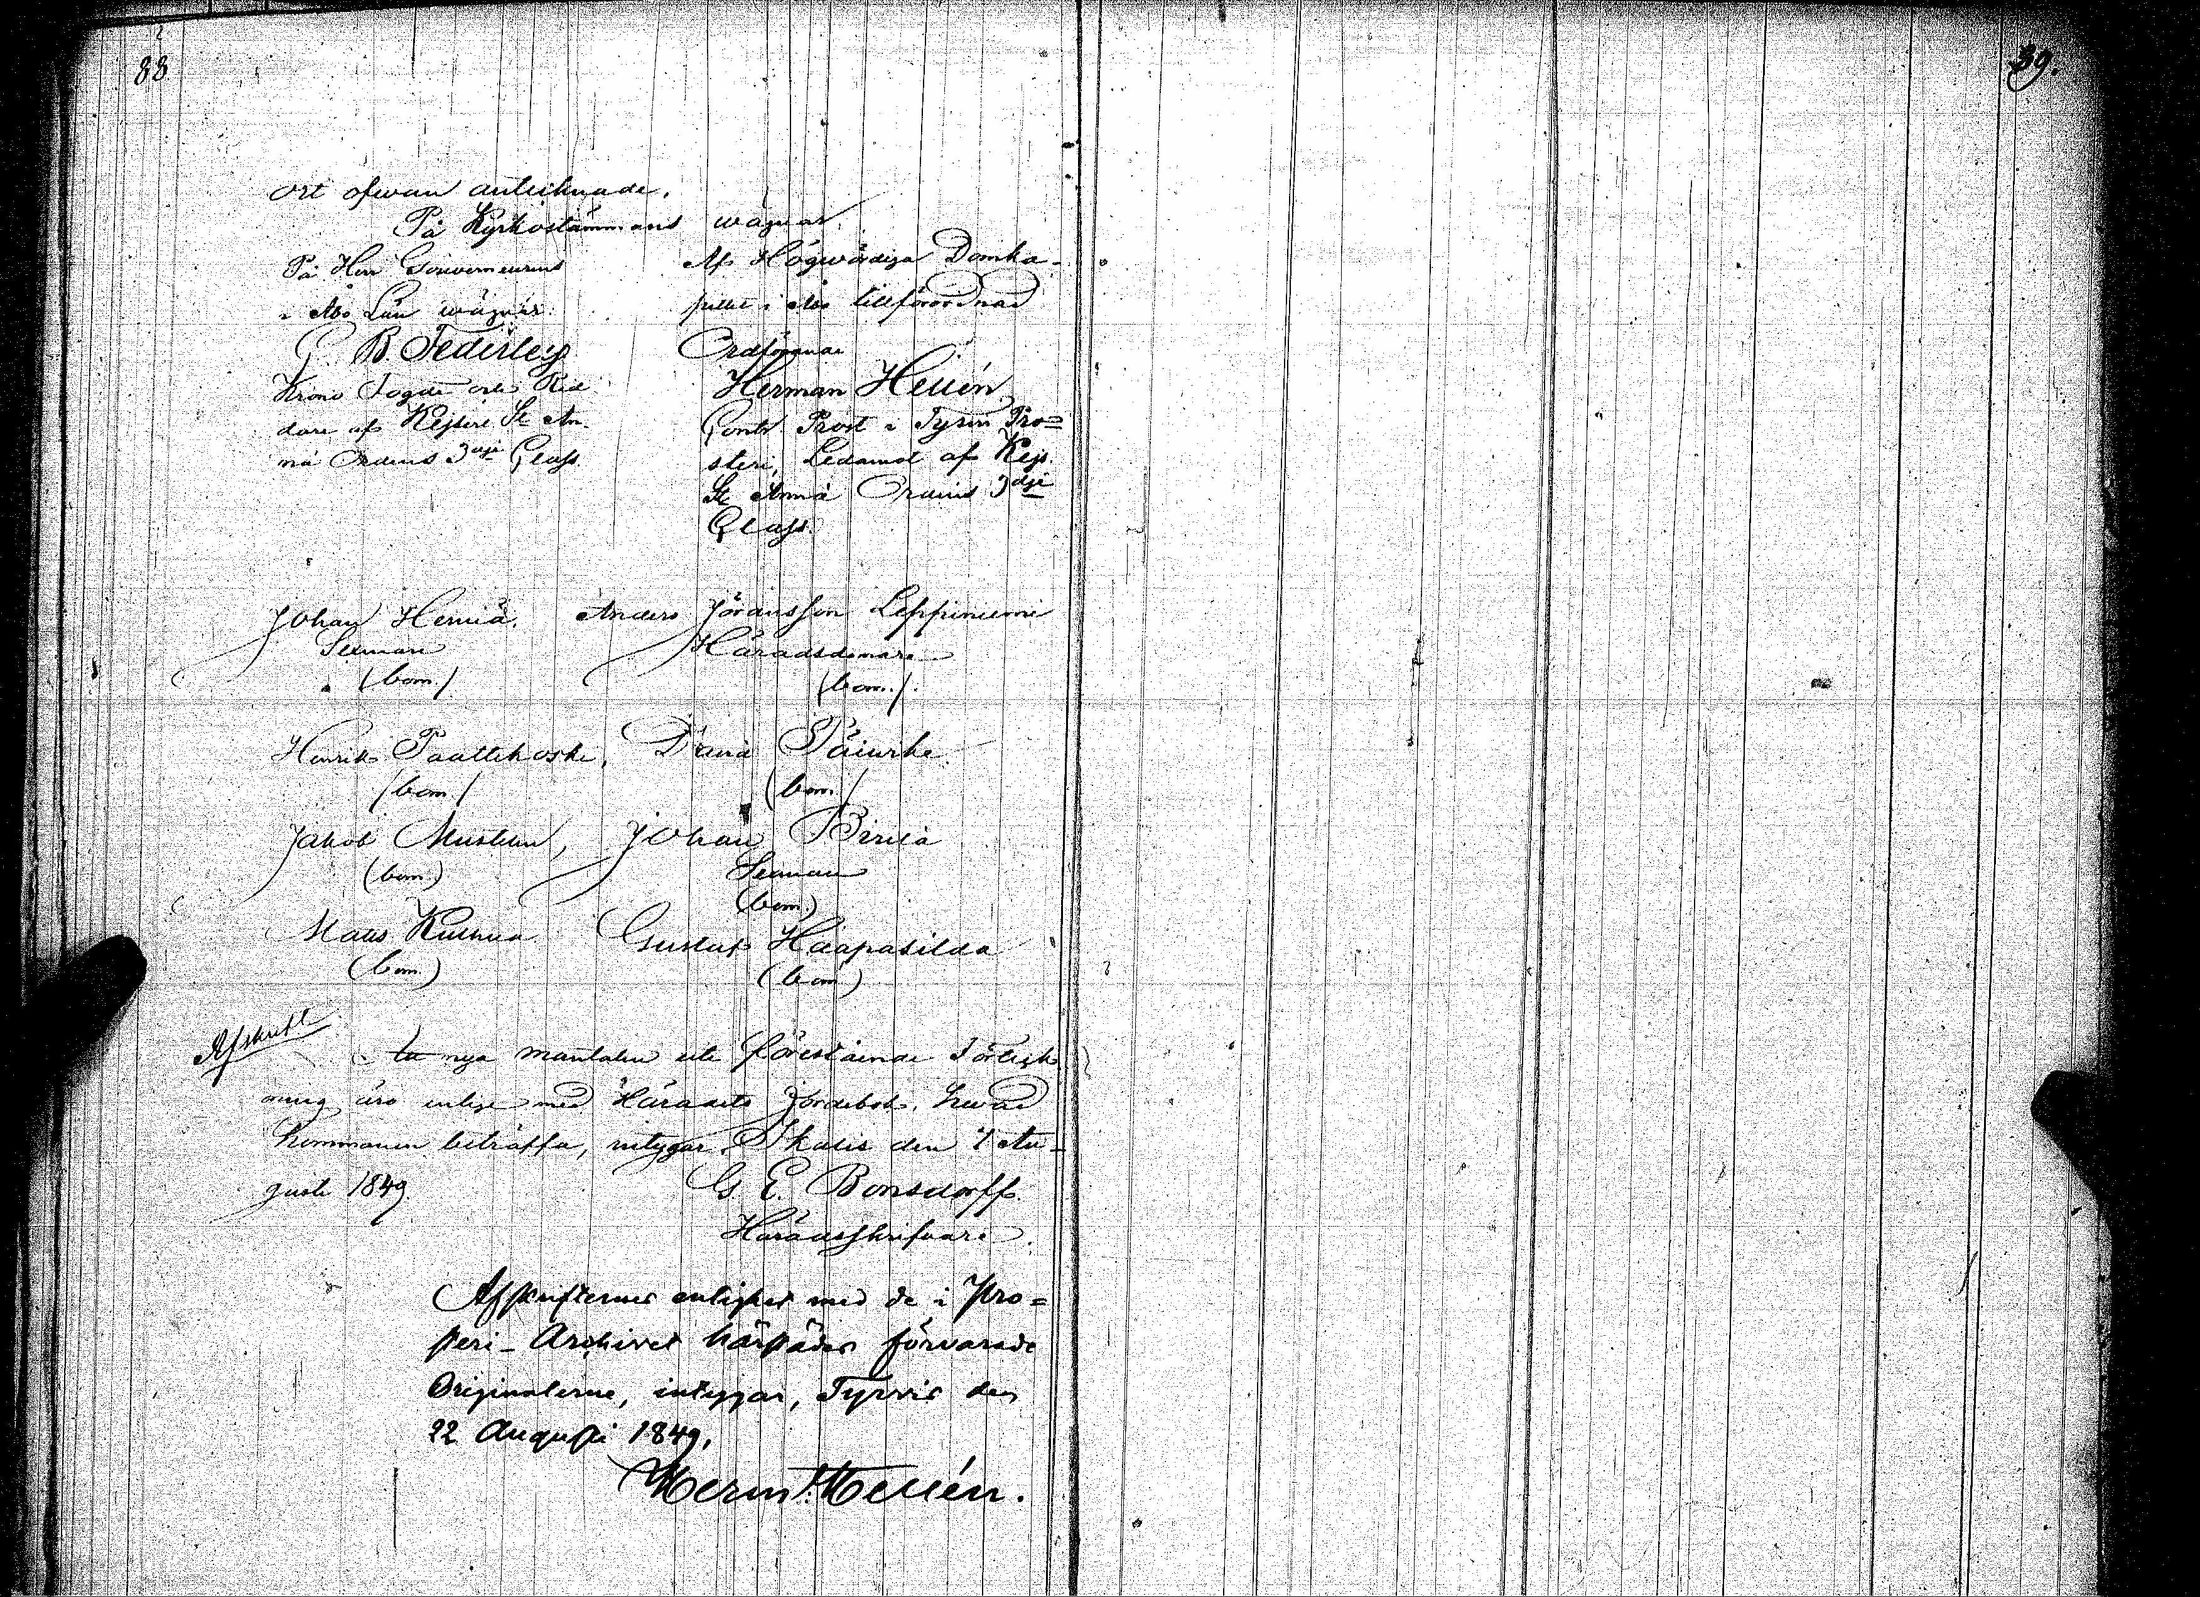 88
89.
ort ofwan antecknade.
På Kyrkostämmans wägnar
På Herr Gouverneurens
i Åbo Län wägnar:
G. B. Federley
Krono Fogde och Rid-
dare af Kejserl. St. An-
nä Ordens 3dje Class.
Af Högwördiga Domka-
pitlet i Åbo tillförordnad
Ordförande
Herman Hellén
Contr. Prost i Tyrvis Pro=
steri, Ledamot af Kejs.
St. Annä Ordens 3dje
Class.
Johan Hernia. Anders Jöransson Leppiniemi
Sexman Häradsdomare
(bom.) (bom.)
Henrik Paattikoski, David Päiwike
(bom.) (bom.)
Jakob Mustela, Johan Pirilä
(bom.) Sexman
(bom.)
Mats Kulhua Gustaf Haapasilda
(bom.) (bom)
Afskrift
nya mantalen uti förestående Förteck-
ning äro enlige med Häradets Jordebok, hwad
hemmanen beträffa, intygar, Ikalis den 7 Au-
gusti 1849.
G. E. Bonsdorff.
Häradsskrifvare.
Afskrifternes enlighet med de i Pro=
steri-Archivet härstädes förvarade
Originalerne, intygar, Tyrvis den
22 Augusti 1849.
Herm: Hellén.